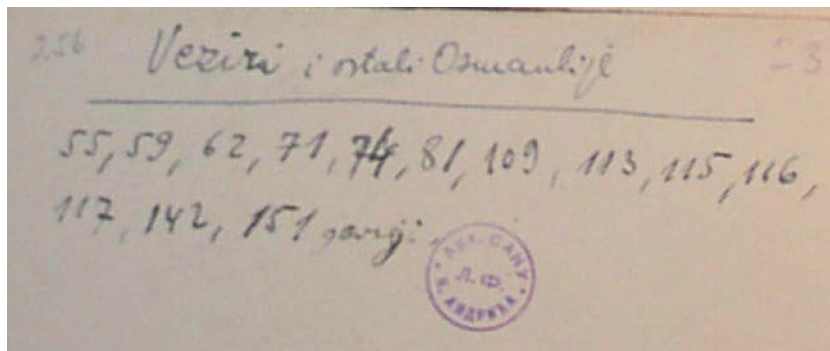 256 Veziri i ostali Osmanlije
55, 59, 62, 71, 74, 81, 109, 113, 115, 116,
117, 142, 151
Арх. САНУ
Л. Ф.
И. АНДРИЋА